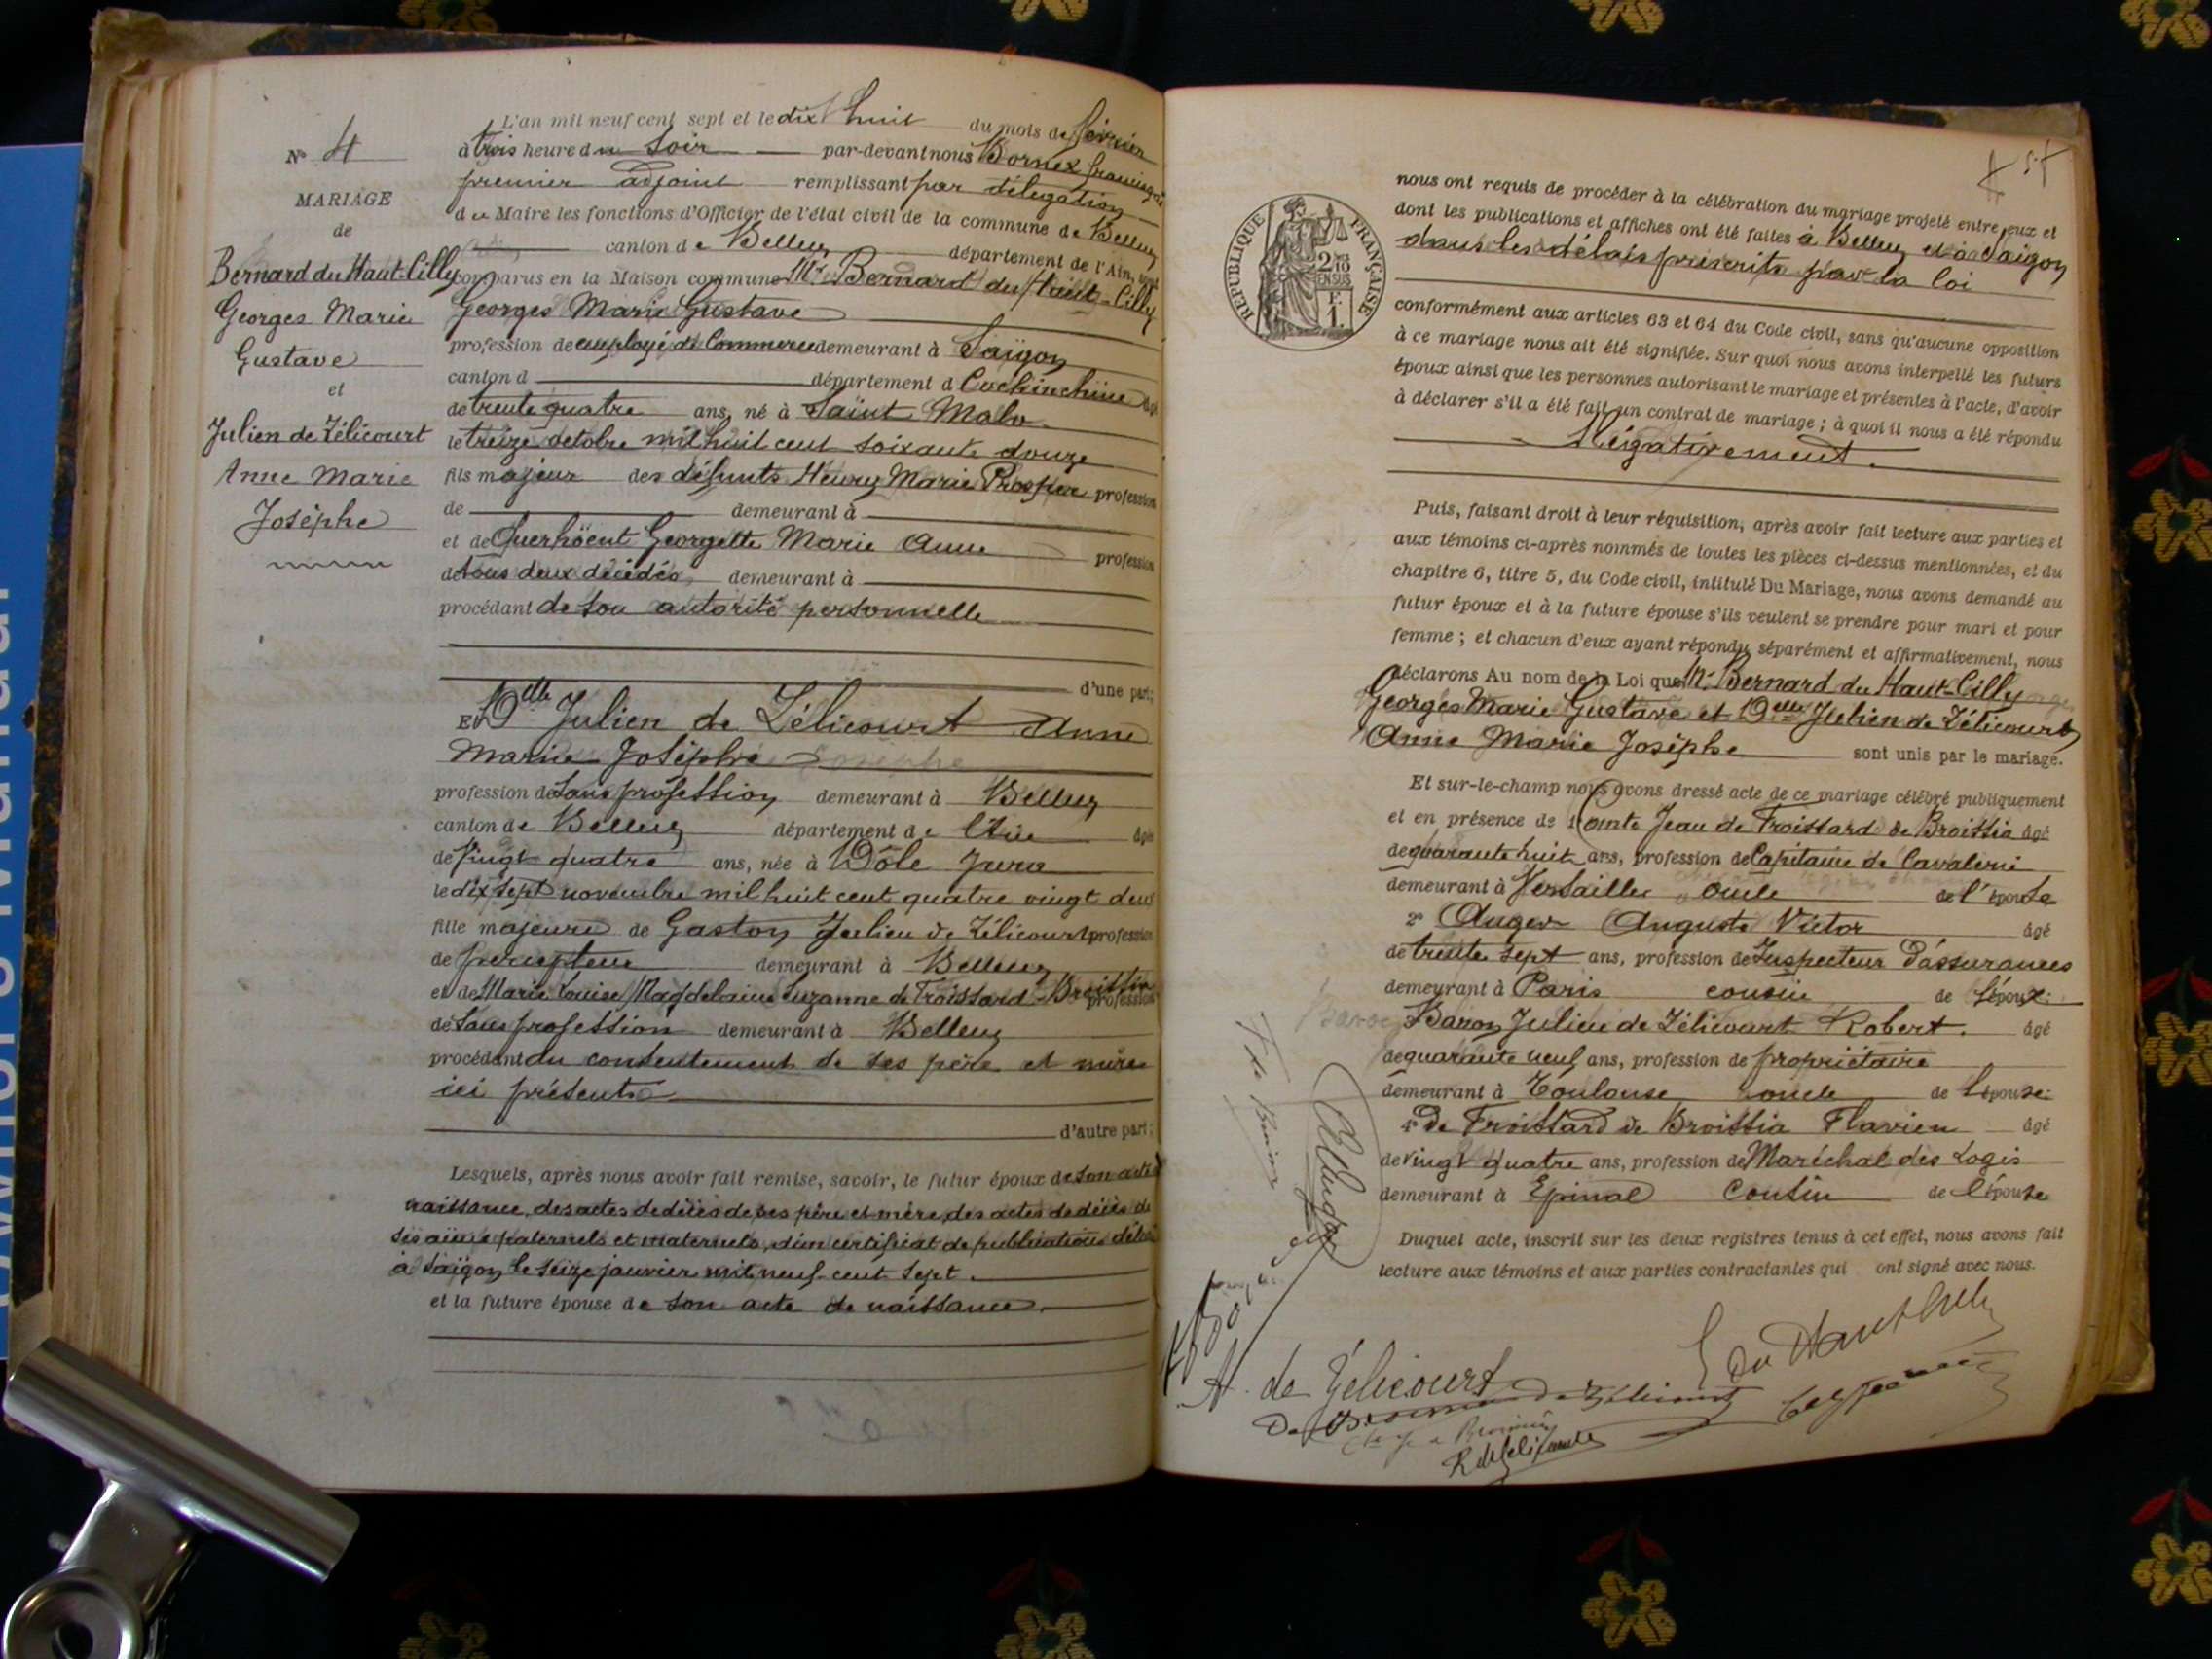 N° 4
MARIAGE
de
Bernard du Haut-Cilly
Georges Marie
Gustave
et
Julien de Zélicourt
Anne Marie
Josèphe
L'an mil neuf cent sept et le dix huit du mois de février
à trois heure du soir par-devant nous Bornex
premier adjoint remplissant par délégation
du Maire les fonctions d'Officier de l'état civil de la commune de Belley
canton de Belley département de l'Ain, sont
comparus en la Maison commune Mr. Bernard du Haut-Cilly
Georges Marie Gustave
profession de employé de Commerce demeurant à Saïgon
canton d département d Cochinchine âgé
de trente quatre ans, né à Saint Malo
le treize octobre mil huit cent soixante douze
fils majeur des défunts Henry Marie Prosper profession
de demeurant à
et de Querhöent Georgette Marie Anne profession
de tous deux décédés demeurant à
procédant de son autorité personnelle
d'une part;
Et Delle Julien de Zélicourt Anne
Marie Josèphe
profession de sans profession demeurant à Belley
canton de Belley département de l'Ain âgée
de vingt quatre ans, née à Dôle Jura
le dix sept novembre mil huit cent quatre vingt deux
fille majeure de Gaston Julien de Zélicourt profession
de percepteur demeurant à Belley
et de Marie Louise Magdelaine Suzanne de Troissard-Broissia profession
de sans profession demeurant à Belley
procédant du consentement de ses père et mère
ici présents
d'autre part;
Lesquels, après nous avoir fait remise, savoir, le futur époux de son acte
naissance, des actes de décès de ses père et mère, des actes de décès de
ses aïeuls paternels et maternels, d'un certificat de publications délivré
à Saïgon le seize janvier mil neuf cent sept.
et la future épouse de son acte de naissance.
RÉPUBLIQUE FRANÇAISE
2/10 EN SUS
F. 1.
nous ont requis de procéder à la célébration du mariage projeté entre eux et
dont les publications et affiches ont été faites à Belley et à Saïgon
dans les délais prescrits par la loi
conformément aux articles 63 et 64 du Code civil, sans qu'aucune opposition
à ce mariage nous ait été signifiée. Sur quoi nous avons interpellé les futurs
époux ainsi que les personnes autorisant le mariage et présentes à l'acte, d'avoir
à déclarer s'il a été fait un contrat de mariage ; à quoi il nous a été répondu
Négativement.
Puis, faisant droit à leur réquisition, après avoir fait lecture aux parties et
aux témoins ci-après nommés de toutes les pièces ci-dessus mentionnées, et du
chapitre 6, titre 5, du Code civil, intitulé Du Mariage, nous avons demandé au
futur époux et à la future épouse s'ils veulent se prendre pour mari et pour
femme ; et chacun d'eux ayant répondu séparément et affirmativement, nous
déclarons Au nom de la Loi que Mr. Bernard du Haut-Cilly
Georges Marie Gustave et Delle Julien de Zélicourt
Anne Marie Josèphe sont unis par le mariage.
Et sur-le-champ nous avons dressé acte de ce mariage célébré publiquement
et en présence de 1° Comte Jean de Froissard de Broissia âgé
de quarante huit ans, profession de Capitaine de Cavalerie
demeurant à Versailles oncle de l'épouse
2° Auger Auguste Victor âgé
de trente sept ans, profession de Inspecteur d'assurances
demeurant à Paris cousin de l'époux;
Baron Julien de Zélicourt Robert. âgé
de quarante neuf ans, profession de propriétaire
demeurant à Toulouse oncle de l'épouse;
4° De Froissard de Broissia Flavien âgé
de vingt quatre ans, profession de Maréchal des Logis
demeurant à Epinal cousin de l'épouse
Duquel acte, inscrit sur les deux registres tenus à cet effet, nous avons fait
lecture aux témoins et aux parties contractantes qui ont signé avec nous.
G du Haut Cilly
A. de Zélicourt
R de Zélicourt